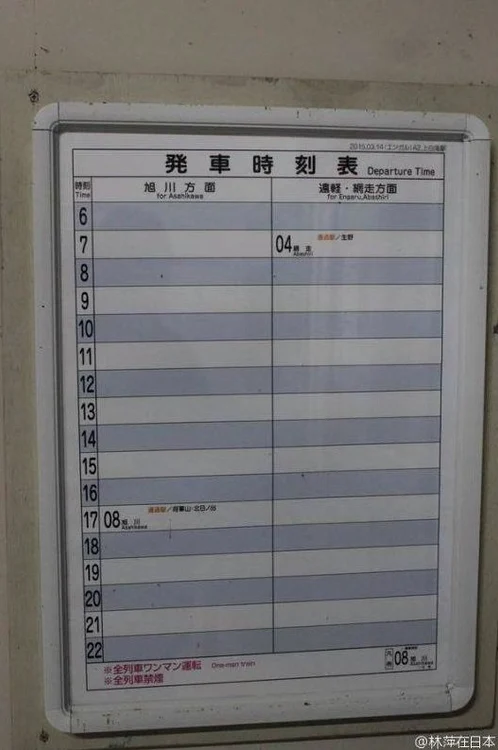 2015.03.14 (エンガル) A2 上白滝駅
発車時刻表 Departure Time
時刻 Time
旭川方面 for Asahikawa
遠軽・網走方面 for Engaru,Abashiri
6
7 04 網走 Abashiri 通過駅／生野
8
9
10
11
12
13
14
15
16
17 08 旭川 Asahikawa 通過駅／将軍山・北日ノ出
18
19
20
21
22
※全列車ワンマン運転 One-man train
※全列車禁煙
凡例 08 旭川 Asahikawa
@林萍在日本